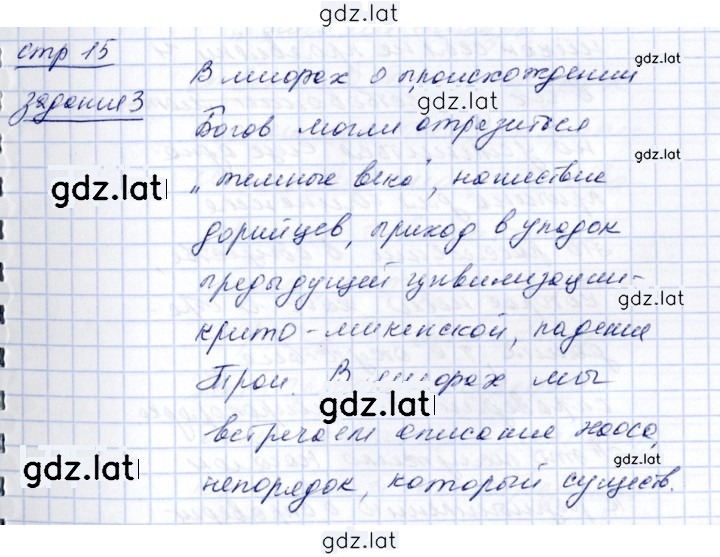 gdz.lat
стр 15
gdz.lat
В мифах о происхождении
задание 3
gdz.lat
Богов могли отразиться
gdz.lat
gdz.lat
"темные века", нашествие
дорийцев, приход в упадок
предыдущей цивилизации-
gdz.lat
крито-микенской, падение
Трои. В мифах мы
gdz.lat
встречаем описание хаоса,
gdz.lat
gdz.lat
непорядок, который существ.
gdz.lat